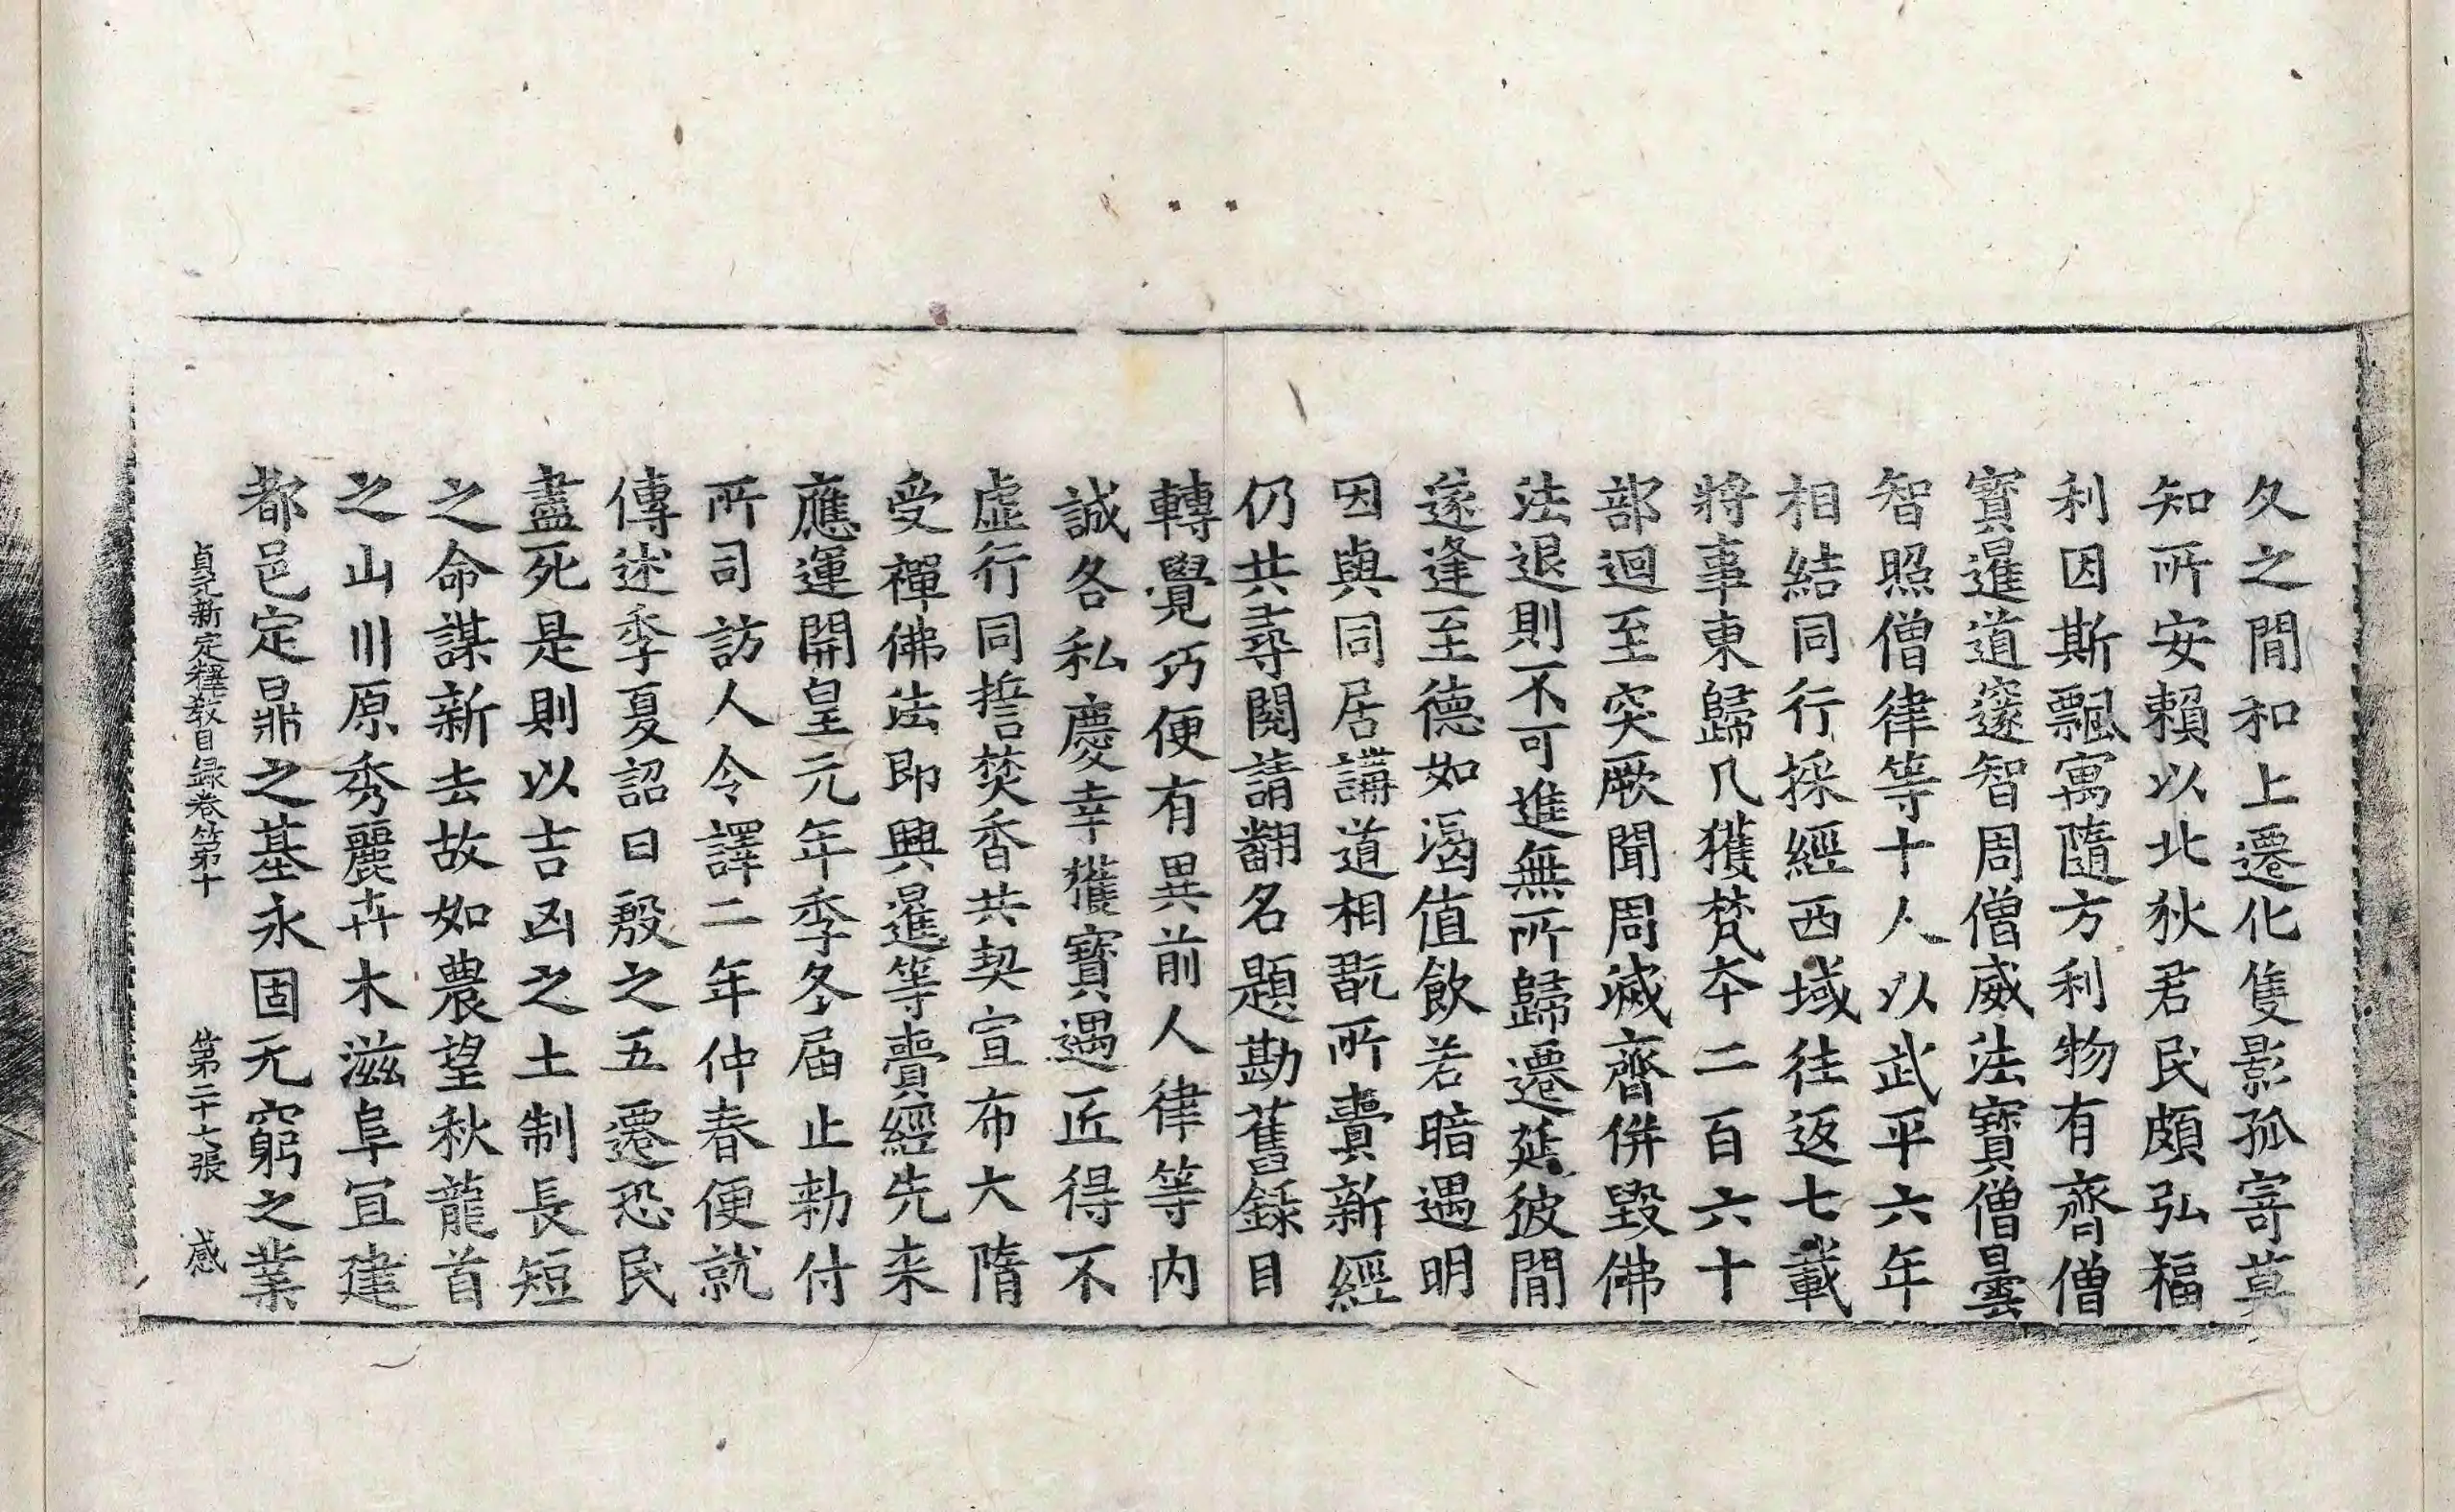 久之間和上遷化隻影孤寄莫
知所安賴以北狄君民頗弘福
利因斯飄寓隨方利物有齊僧
寶暹道邃智周僧威法寶僧曇
智照僧律等十人以武平六年
相結同行採經西域往返七載
將事東歸凡獲梵夲二百六十
部迴至突厥聞周滅齊併毀佛
法退則不可進無所歸遷延彼間
遂逢至德如渴值飲若暗遇明
因與同居講道相翫所賷新經
仍共尋閱請翻名題勘舊錄目
轉覺巧便有異前人律等內
誠各私慶幸獲寶遇匠得不
虛行同誓焚香共契宣布大隋
受禪佛法即興暹等賷經先来
應運開皇元年季冬届止勑付
所司訪人令譯二年仲春便就
傳述季夏詔曰殷之五遷恐民
盡死是則以吉凶之土制長短
之命謀新去故如農望秋龍首
之山川原秀麗卉木滋阜宜建
都邑定鼎之基永固无窮之業
貞元新定釋教目録卷第十 第二十七張 感